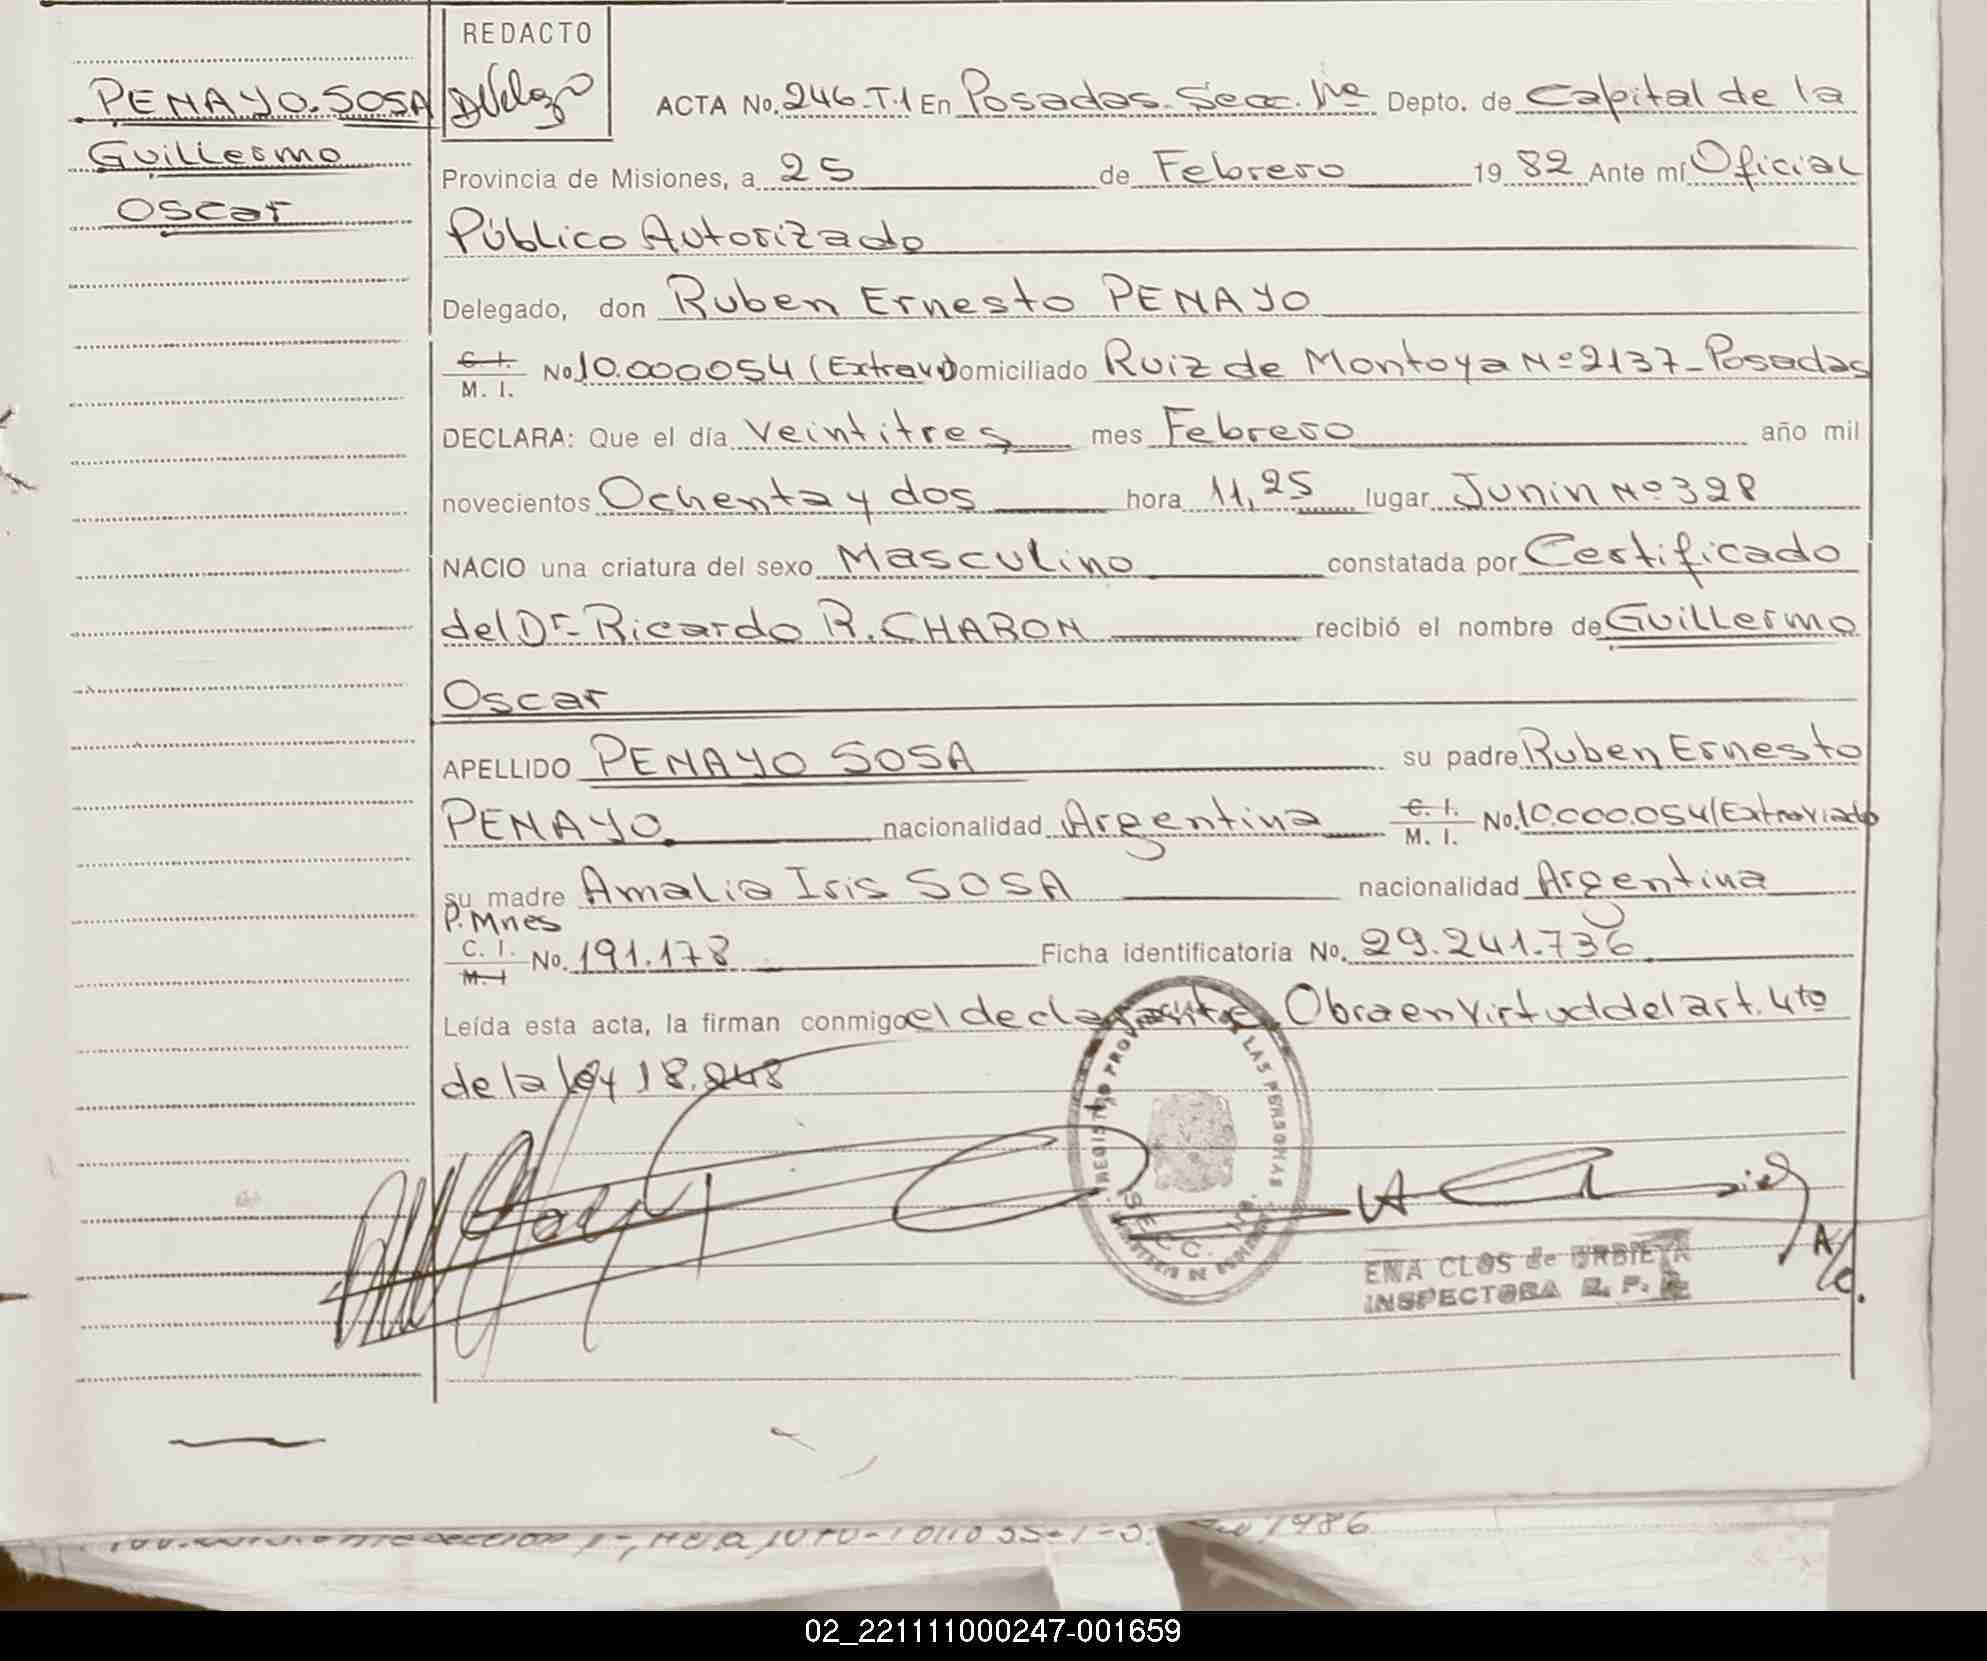 REDACTO
PENAYO. SOSA
Guillermo
Oscar
ACTA No. 246-T.1 En Posadas. Secc. 1ra Depto. de Capital de la
Provincia de Misiones, a 25 de Febrero 1982 Ante mí Oficial
Público Autorizado
Delegado, don Ruben Ernesto PENAYO
C. I. / M. I. No. 10.000054 (Extrav) Domiciliado Ruiz de Montoya Nº 2137-Posadas
DECLARA: Que el día veintitres mes Febrero año mil
novecientos Ochenta y dos hora 11,25 lugar Junin Nº 328
NACIO una criatura del sexo Masculino constatada por Certificado
del Dr- Ricardo R. CHARON recibió el nombre de Guillermo
Oscar
APELLIDO PENAYO SOSA su padre Ruben Ernesto
PENAYO. nacionalidad Argentina C. I. / M. I. No. 10.000.054 (Extraviado
su madre Amalia Iris SOSA nacionalidad Argentina
P. Mnes
C. I. / M. I No. 191.178 Ficha identificatoria No. 29.241.736
Leída esta acta, la firman conmigo el declarante. Obra en virtud del art. 4to
de la ley 18.248
REGISTRO PROVINCIAL DE LAS PERSONAS
SECC. 1ra.
ENA CLOS de URBIETA
INSPECTORA R. P. P.
A/c.
1986
02_221111000247-001659